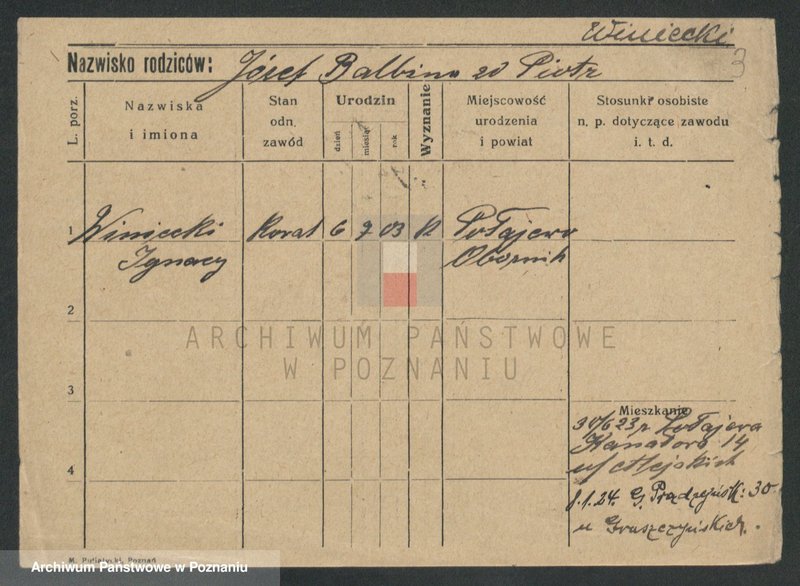 Winiecki
3
Nazwisko rodziców: Józef Balbina zd Piotr
L. porz.
Nazwiska
i imiona
Stan
odn.
zawód
Urodzin
dzień
miesiąc
rok
Wyznanie
Miejscowość
urodzenia
i powiat
Stosunki osobiste
n. p. dotyczące zawodu
i. t. d.
1 Winiecki Kowal 6 7 03 k Połajewo
Ignacy Obornik
2
ARCHIWUM PAŃSTWOWE
W POZNANIU
3
Mieszkanie
30/6 23 r. Połajewa
Kanałowa 14
4
8.1.24. G. Prądzyńsk. 30
u Gruszczyńskich.
Poznań
Archiwum Państwowe w Poznaniu